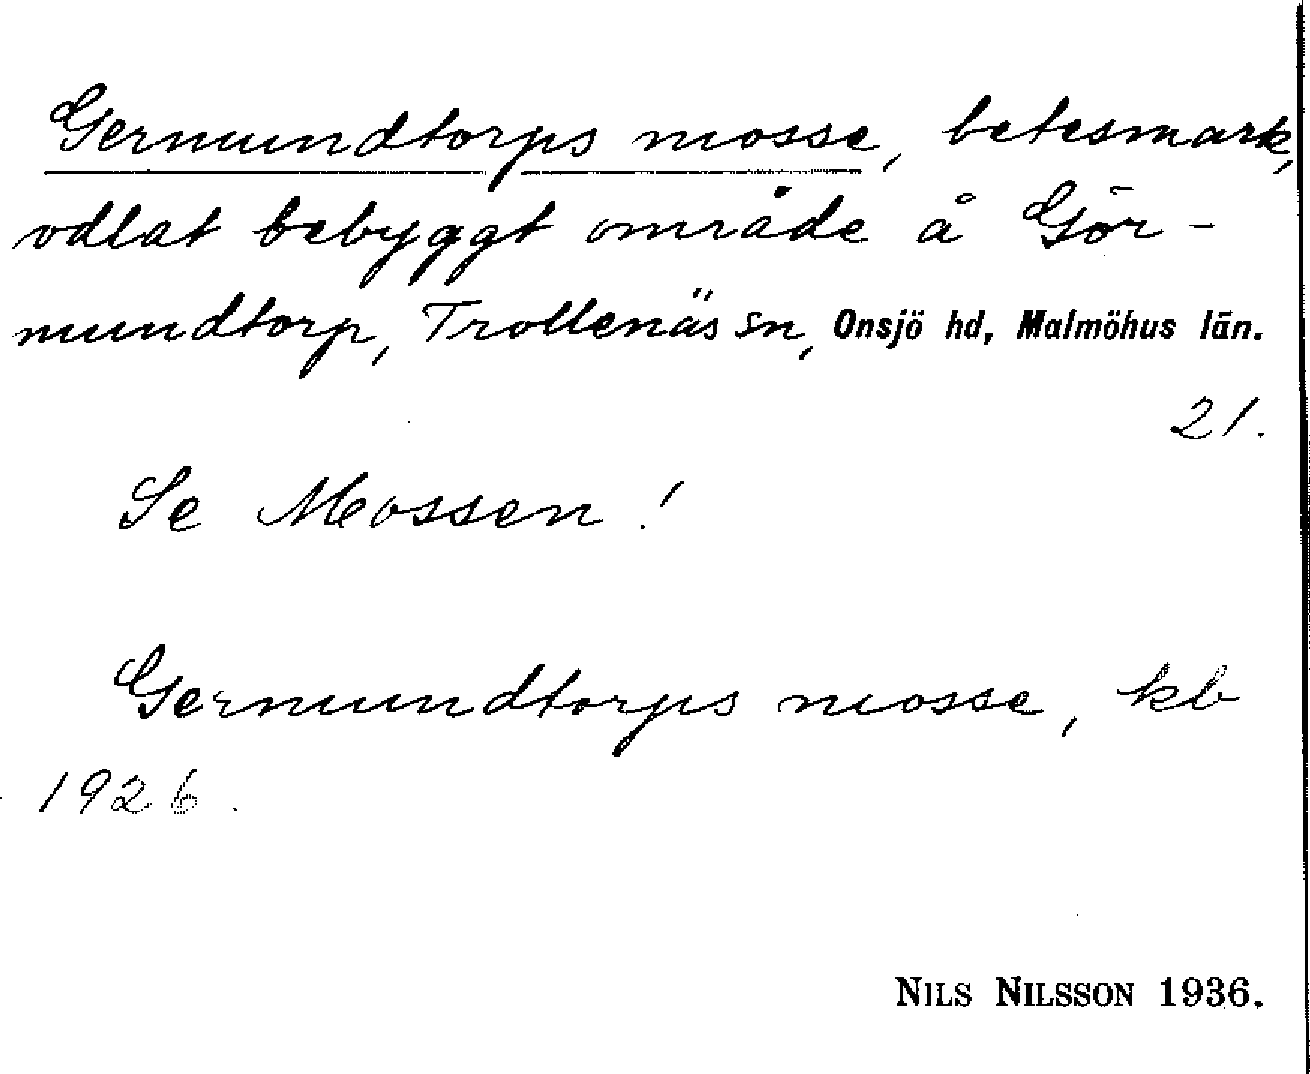 Germundtorps mosse, betesmark,
odlat bebyggt område å Gör-
mundtorp, Trollenäs sn, Onsjö hd, Malmöhus län.
21.
Se Mossen!
Germundtorps mosse, kb
1926.
NILS NILSSON 1936.